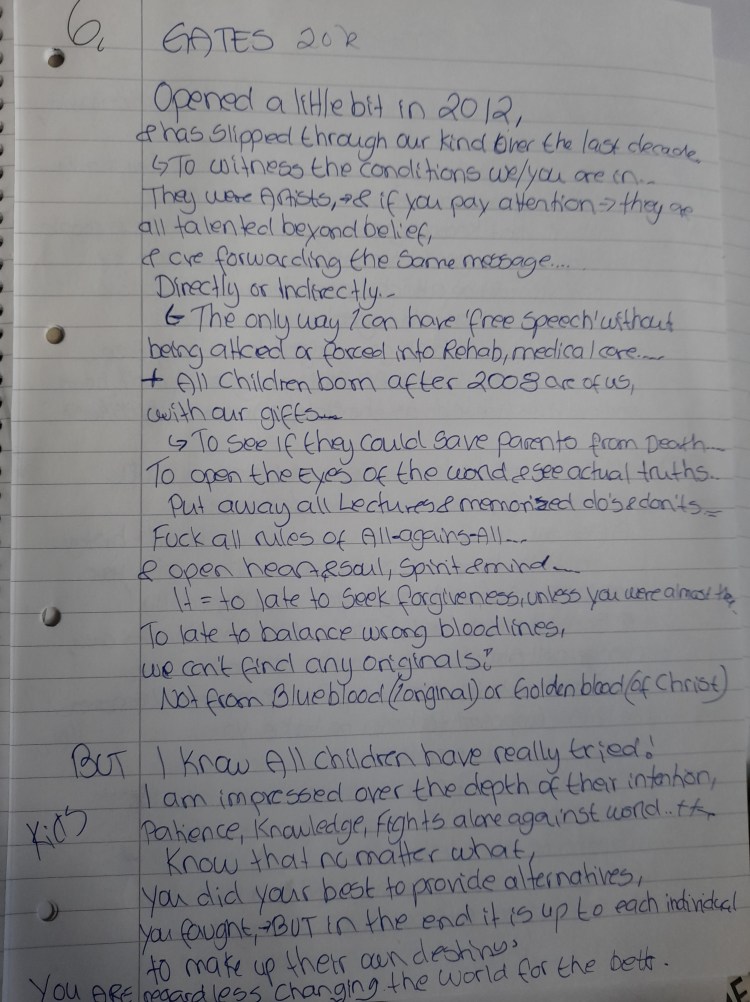 6. GATES 20k
Opened a little bit in 2012,
& has slipped through our kind over the last decade.
↳ To witness the conditions we/you are in...
They were Artists, → & if you pay attention ⇒ they are
all talented beyond belief,
& are forwarding the same message....
Directly or Indirectly...
↳ The only way I can have 'free speech' without
being or forced into Rehab, medical care....
+ All Children born after 2008 are of us,
with our gifts...
↳ To see if they could save parents from Death...
To open the Eyes of the world & see actual truths..
Put away all Lectures & memorized do's & don'ts
Fuck all rules of All-agains-All...
& open heart & soul, spirit & mind...
It = to late to seek forgiveness, unless you were almost
To late to balance wrong bloodlines,
we can't find any originals?
Not from Blueblood (original) or Goldenblood (of Christ)
BUT I know All children have really tried!
I am impressed over the depth of their intention,
Kids Patience, Knowledge, Fights alone against world..
Know that no matter what,
you did your best to provide alternatives,
you fought, → BUT in the end it is up to each individual
to make up their own destiny.
YOU ARE regardless changing the world for the bettr.